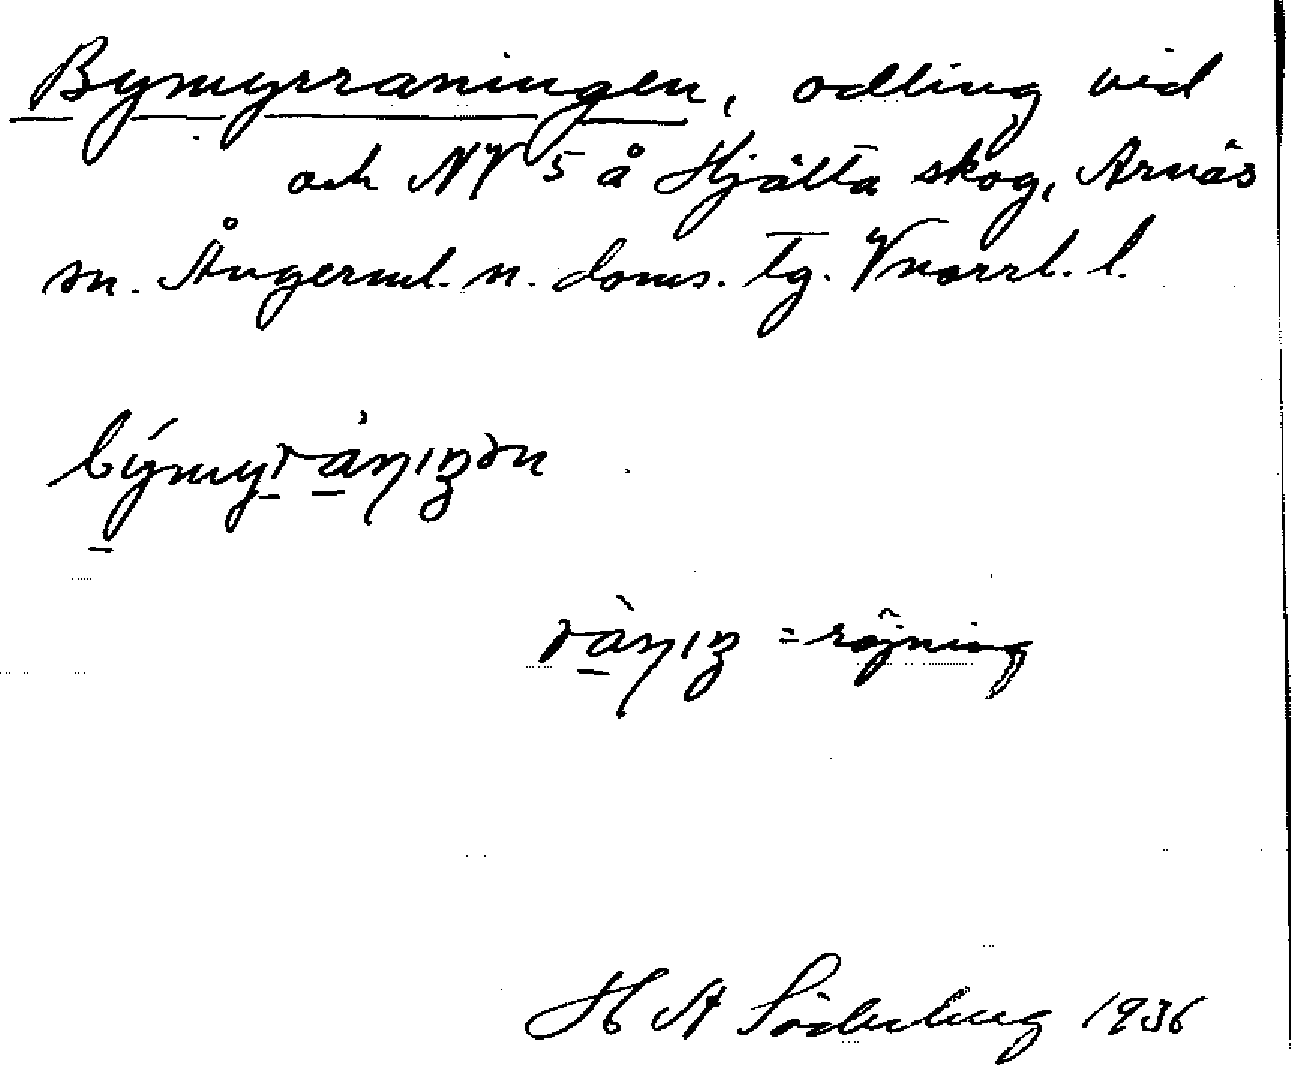 Bymyrraningen, odling vid
och NV 5 å Hjälta skog, Arnäs
sn. Ångerml. n. doms. tg. Vnorrl. l.
býmyràŋıŋən
ràŋıŋ = röjning
H A Söderberg 1936